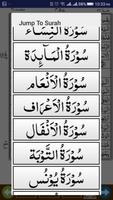 10:33
Jump To Surah
سُوْرَةُ النِّسَاء
سُوْرَةُ الْمَآئِدَة
سُوْرَةُ الْأَنْعَام
سُوْرَةُ الْأَعْرَاف
سُوْرَةُ الْأَنْفَال
سُوْرَةُ التَّوْبَة
سُوْرَةُ يُوْنُس